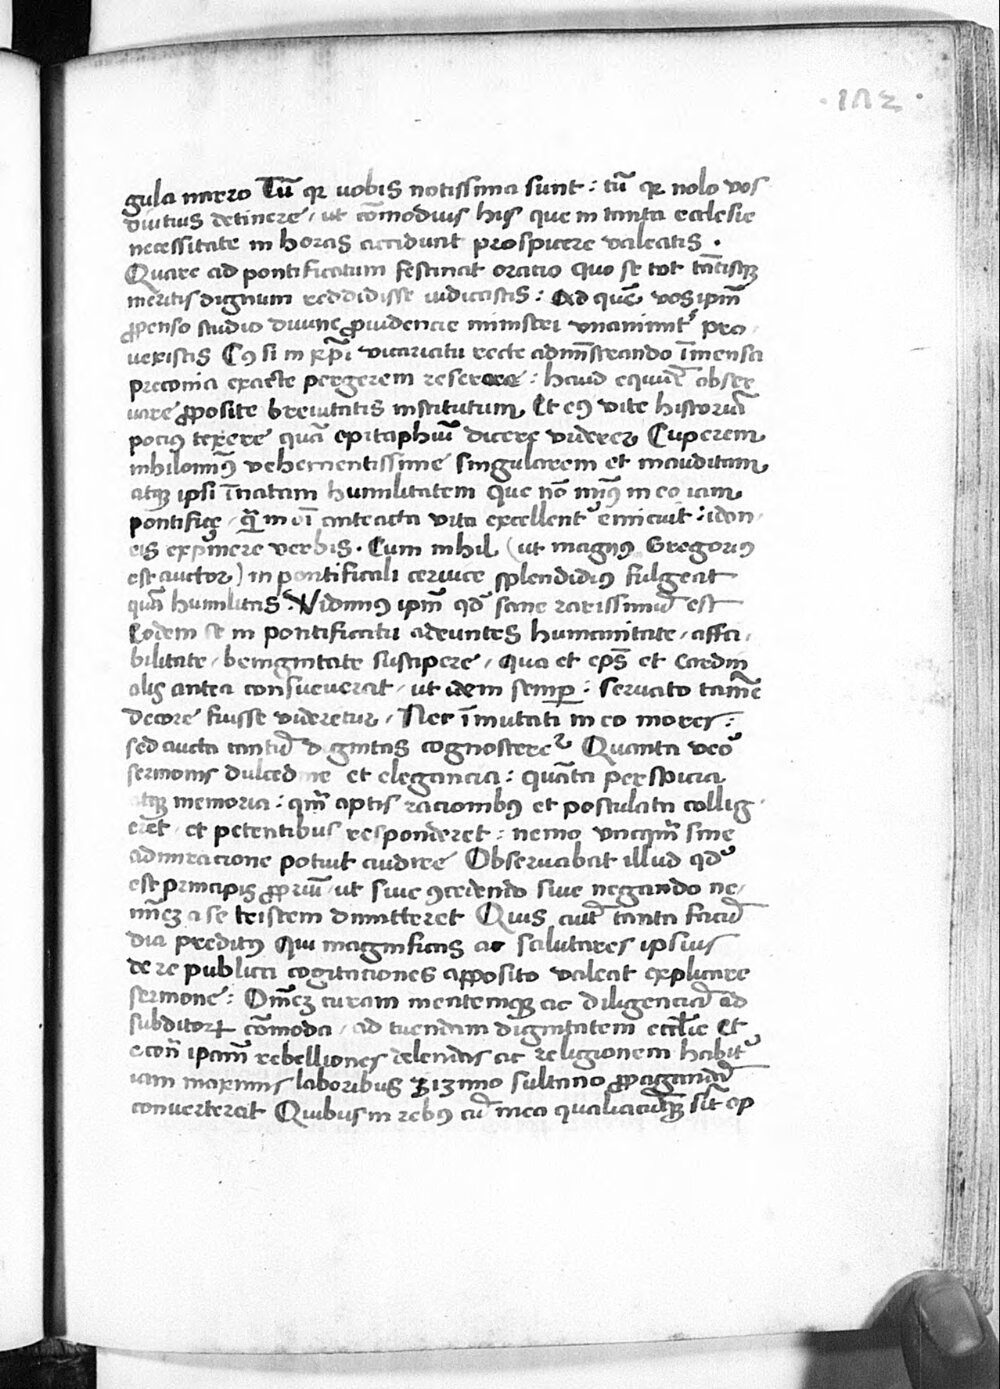 ·182·
gula narro Tū qr uobis notissima sunt : tū qr nolo vos
diutius detinere / ut cōmodius his que in tanta ecclesie
necessitate in horas accidunt prospicere valeatis .
Quare ad pontificatum festinat oratio quo se tot tātisqꝫ
meritis dignum reddidisse iudicastis : Ad quē vos ipm̄
ꝓpenso studio diuine ꝓuidencie ministri vnanimitʼ pro
uexistis Cꝰ si in xp̄i vicariatu recte adm̄strando īmensa
preconia exacte pergerem reserare : haud equidē obser
uare ꝓposite breuitatis institutum Et eꝰ vite historiā
pociꝰ texere quā epitaphiū dicere viderer Cuperem
nihilominꝰ vehementissime singularem et inauditam
atqꝫ ipsi īnatam humilitatem que nō minꝰ in eo iam
pontifice / q̄ in oī anteacta vita excellentʼ emicuit : idon
eis exprimere verbis . Cum nihil ( ut magnꝰ Gregoriꝰ
est auctor ) in pontificali ceruice splendidiꝰ fulgeat
quā humilitas . Vidimꝰ ipm̄ qd̄ sane rarissimū est
Eodem se in pontificatu adeuntes humanitate / affa
bilitate / benignitate suscipere / qua et ep̄s et Cardin
alis antea consueuerat / ut idem semꝑ : seruato tamē
decore fuisse videretur / Nec īmutati in eo mores :
sed aucta tantū dignitas cognoscereʼ Quanta veo
sermonis dulcedine et elegancia : quāta perspicua
atqꝫ memoria : qm̄ aptis racionibꝰ et postulata collig
eret / et petentibus responderet : nemo vncqm̄ sine
admiracione potuit audire Obseruabat illud qd
est principis ꝓprium / ut siue ꝯcedendo siue negando ne
minē a se tristem dimitteret Quis autē tanta facū
dia preditꝰ Qui magnificas ac salutares ipsius
de re publica cogitaciones apposito valeat explicare
sermone : Omēꝫ curam mentemqꝫ ac diligenciā ad
subditoꝝ cōmoda / ad tuendam dignitatem eccl̄ie Et
econ̄ ipam̄ rebelliones delendas ac religionem habitʼ
iam maximis laboribus Zizimo sultano ꝓpagandā
converterat Quibus in rebꝰ cū mea qualiacūqꝫ sīt op